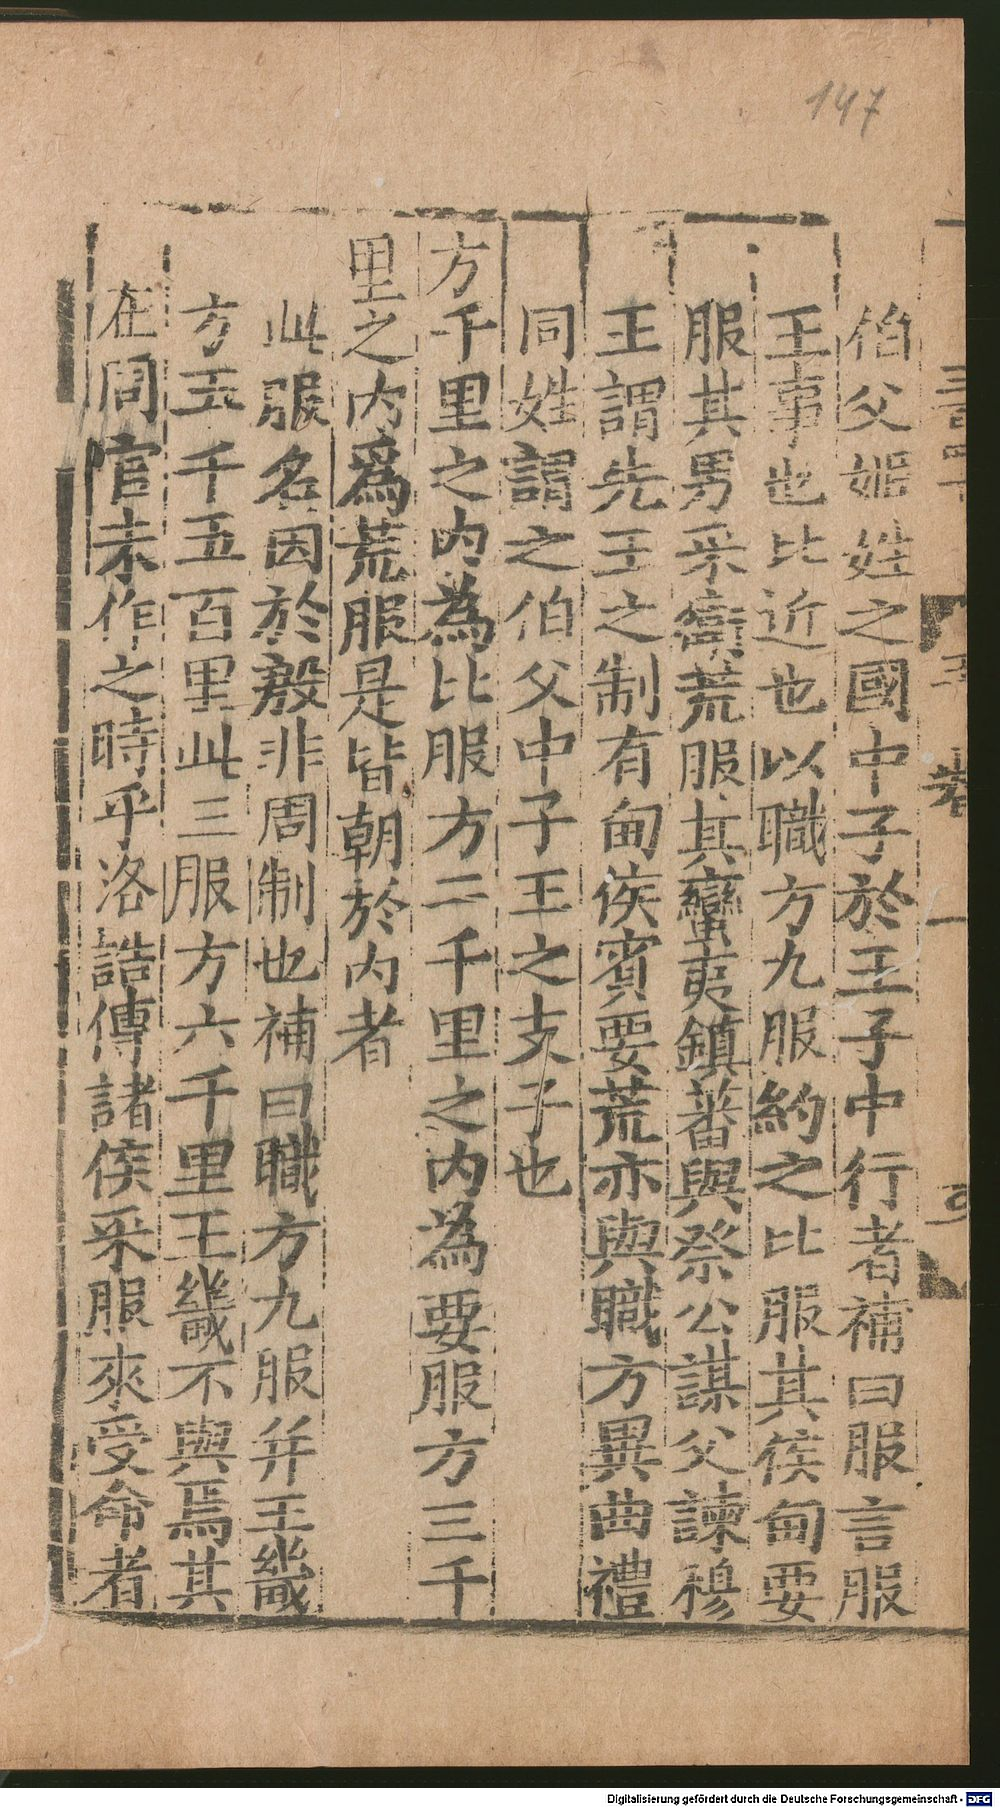 147
伯父姬姓之國中子於王子中行者補曰服言服
王事也比近也以職方九服約之比服其侯甸要
服其男采衛荒服其蠻夷鎮蕃與祭公謀父諫穆
王謂先王之制有甸侯賓要荒亦與職方異曲禮
同姓謂之伯父中子王之支子也
方千里之內為比服方二千里之內為要服方三千
里之內爲荒服是皆朝於內者
此服名因於殷非周制也補曰職方九服并王畿
方五千五百里此三服方六千里王畿不與焉其
在周官未作之時乎洛誥傳諸侯采服來受命者
Digitalisierung gefördert durch die Deutsche Forschungsgemeinschaft - DFG